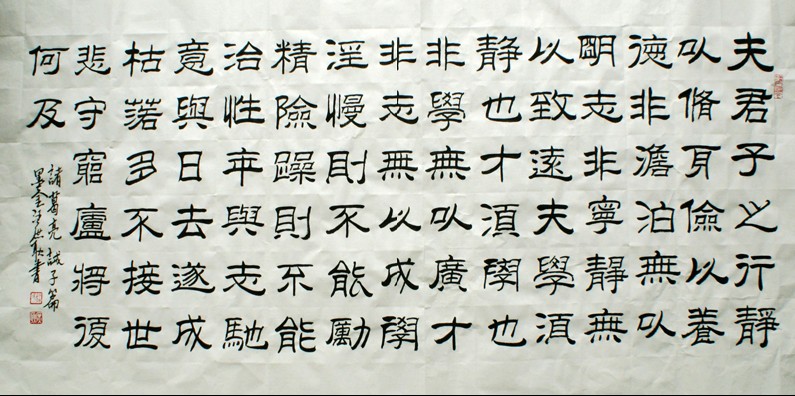 夫君子之行靜
以脩身儉以養
德非澹泊無以
明志非寧靜無
以致遠夫學須
靜也才須學也
非學無以廣才
非志無以成學
淫慢則不能勵
精險躁則不能
治性年與志馳
意與日去遂成
枯落多不接世
悲守窮廬將復
何及
諸葛亮誡子篇